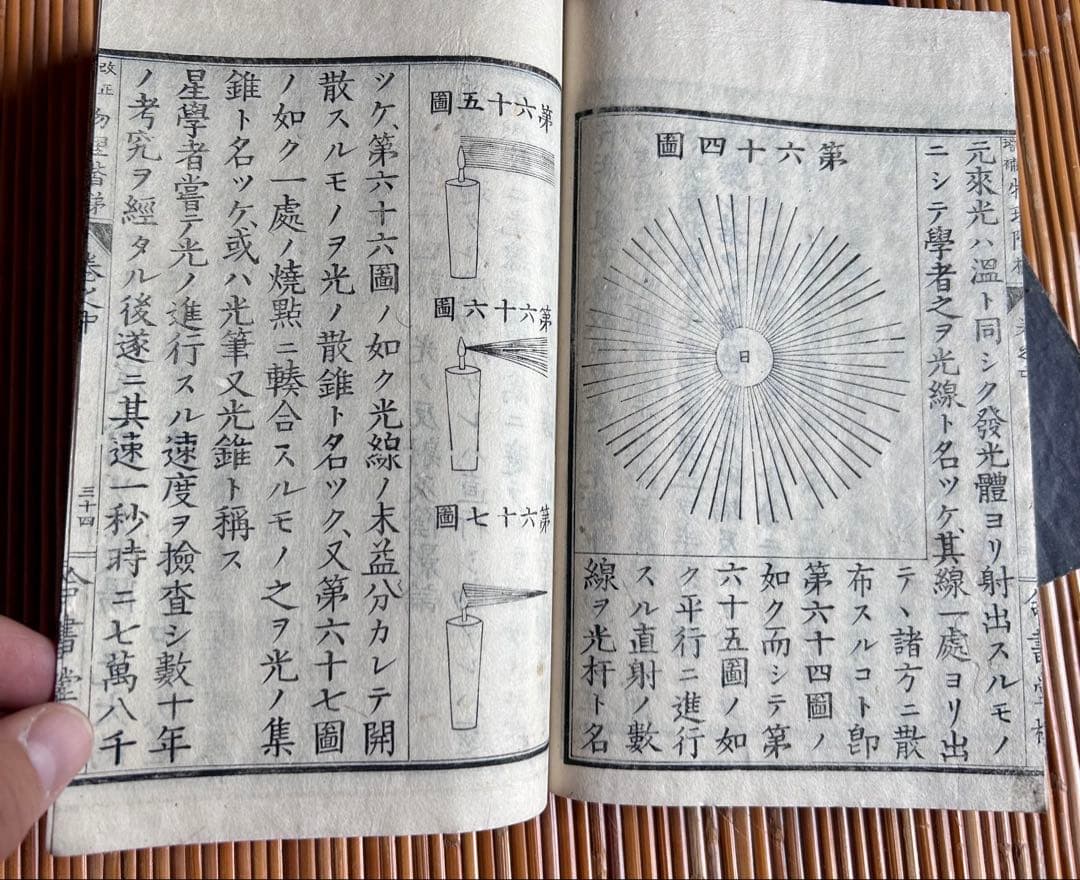 元來光ハ溫ト同シク發光體ヨリ射出スルモノ
ニシテ學者之ヲ光線ト名ツケ、其線一處ヨリ出
第六十四圖
日
テ、諸方ニ散
布スルコト卽
第六十四圖ノ
如ク而シテ第
六十五圖ノ如
ク平行ニ進行
スル直射ノ數
線ヲ光杆ト名
第六十五圖
第六十六圖
第六十七圖
ツケ、第六十六圖ノ如ク光線ノ末益分カレテ開
散スルモノヲ光ノ散錐ト名ツク、又第六十七圖
ノ如ク一處ノ燒點ニ輳合スルモノ之ヲ光ノ集
錐ト名ツケ、或ハ光筆又光錐ト稱ス
星學者嘗テ光ノ進行スル速度ヲ撿査シ數十年
ノ考究ヲ經タル後遂ニ其速一秒時ニ七萬八千
改正
三十四